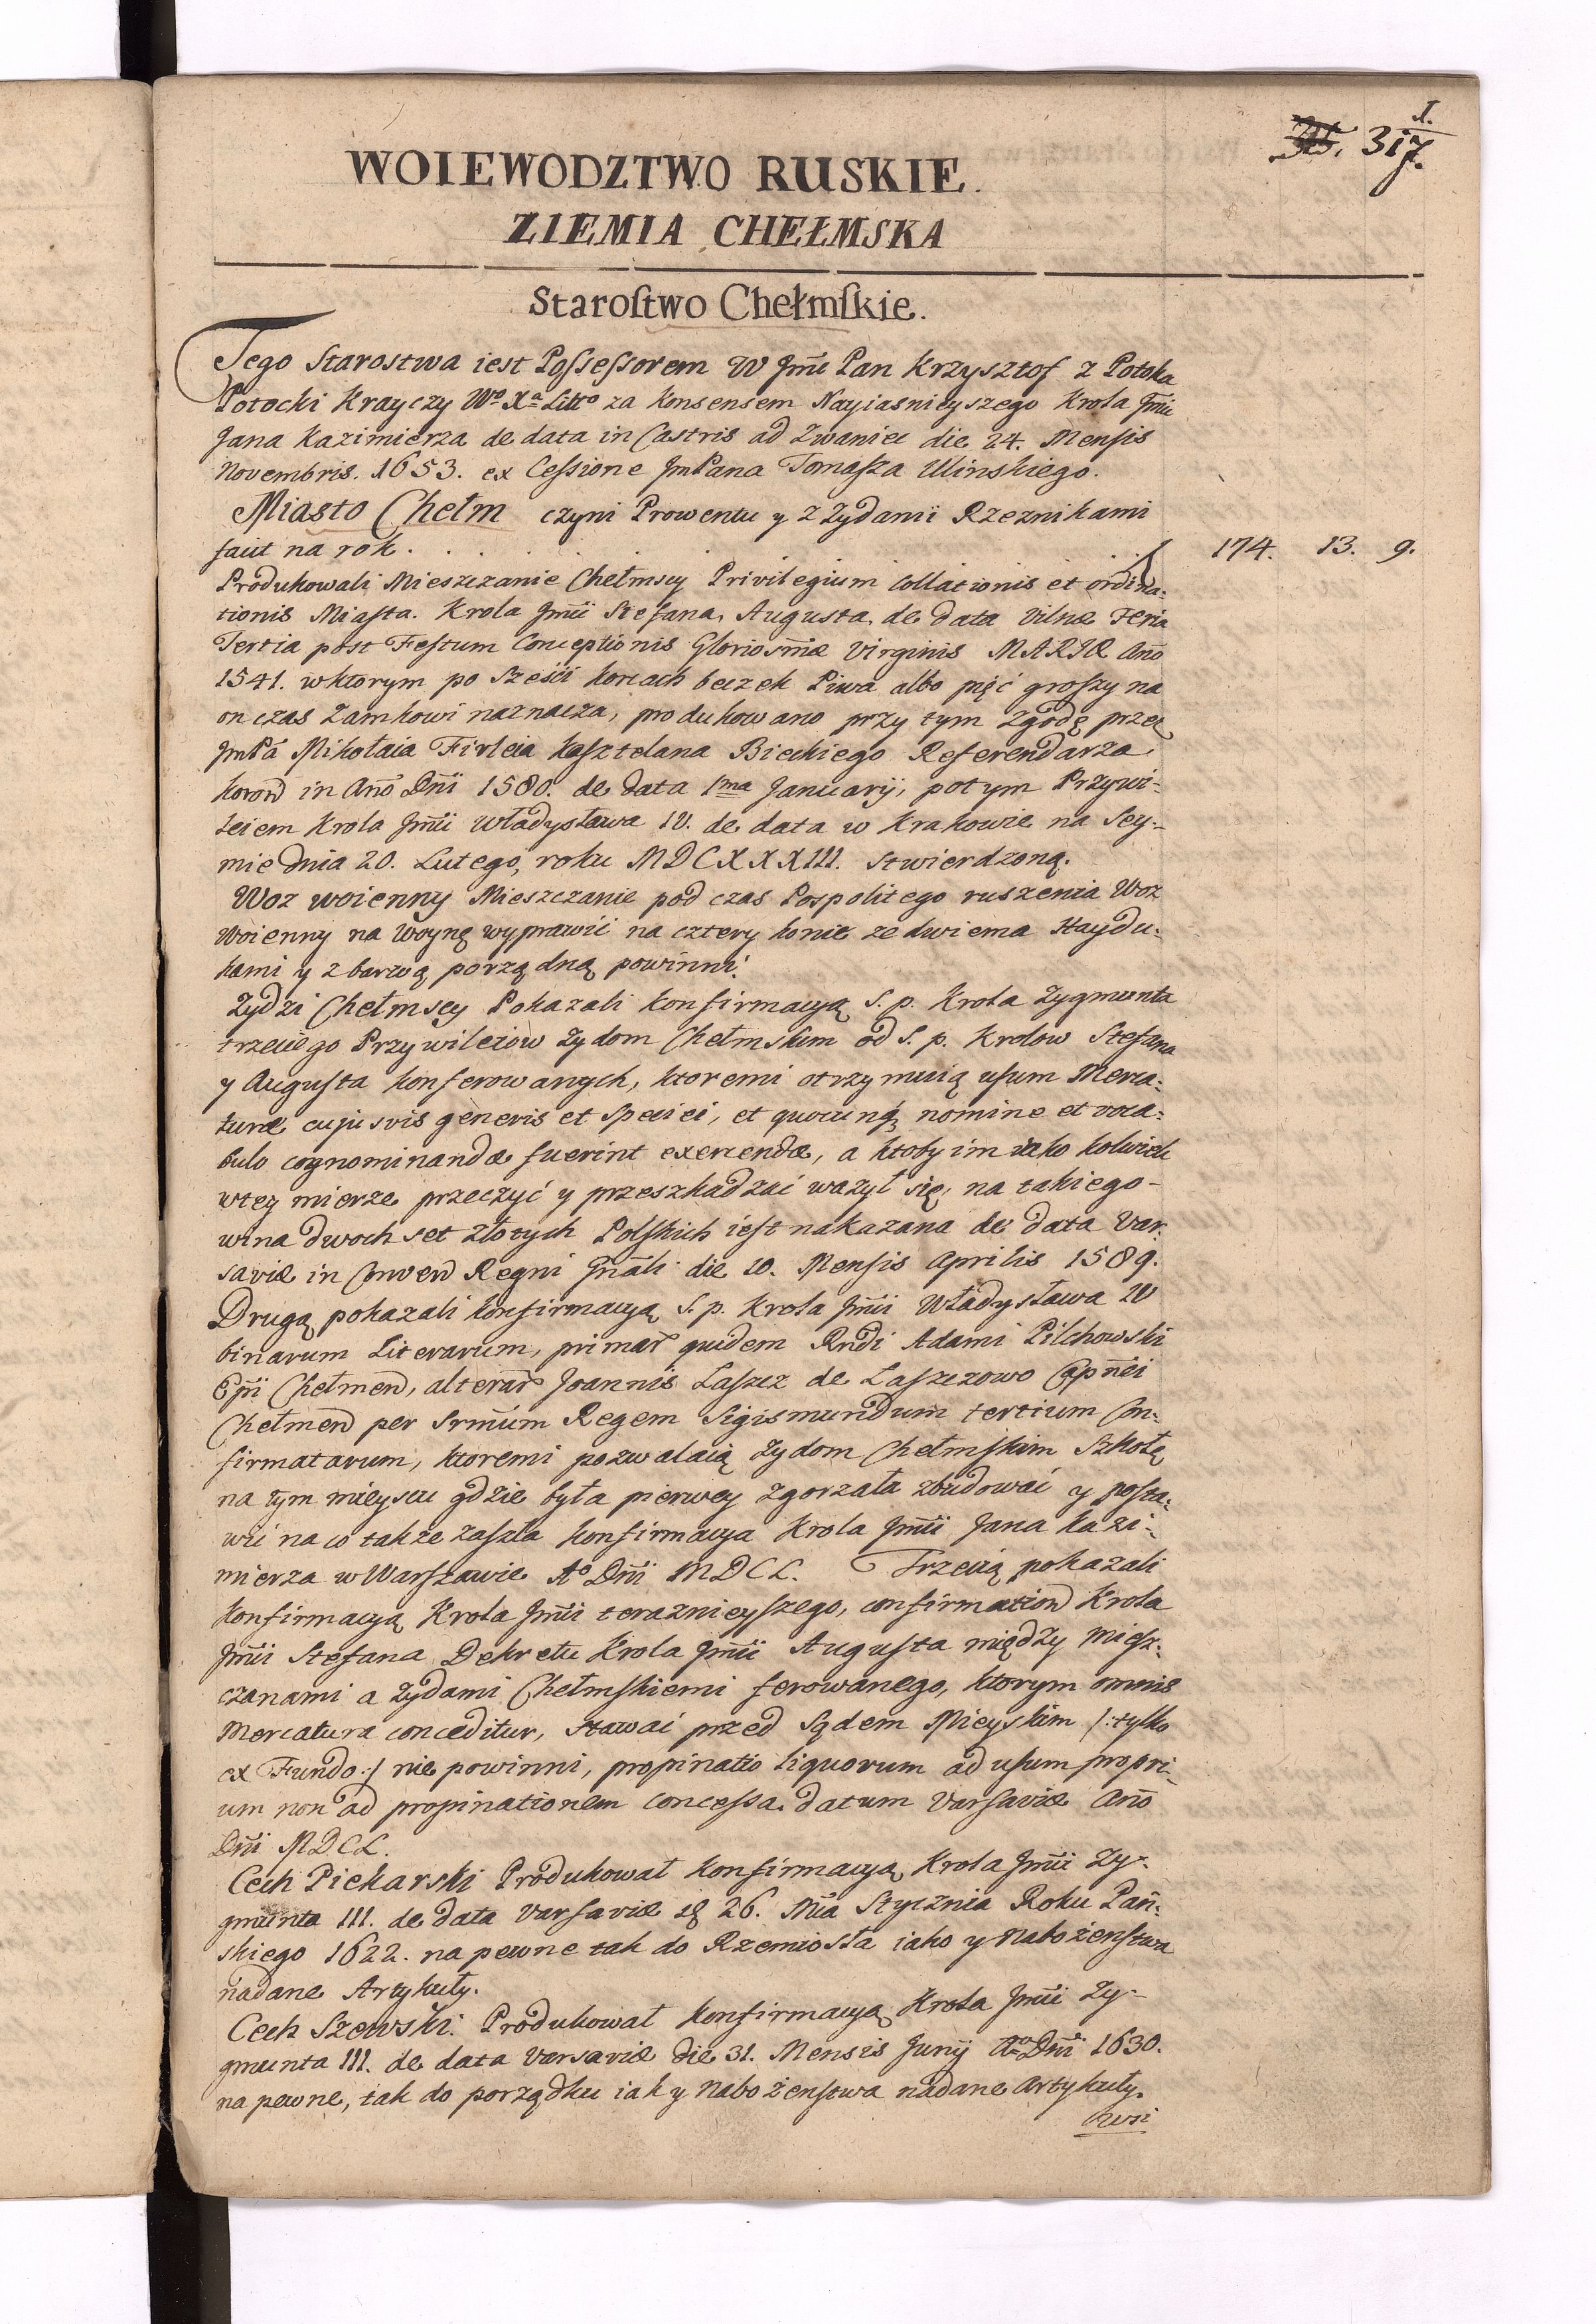 I.
317.
WOIEWODZTWO RUSKIE.
ZIEMIA CHEŁMSKA
Staroſtwo Chełmſkie.
Tego Starostwa iest Poſseſsorem W Jm̃ć Pan Krzysztof z Potoka
Potocki Krayczy Wº Xª Littº za Konsensem Nayiasnieyszego Krola Jm̃ći
Jana Kazimierza de data in Castris ad Zwaniec die 24. Mensis
Novembris. 1653. ex Ceſsione JmPana Tomaſza Ulinskiego.
Miasto Chełm czyni Prowentu y z Zydami Rzeznikami
faut na rok . . . . . . . . 174. 13. 9.
Produkowali Mieszczanie Chełmscy Privilegium Collationis et ordina:
tionis Miaſta. Krola Jm̃ći Stefana, Augusta, de data Vilnæ Feria
Tertia post Feſtum Conceptionis Glorios̃mæ Virginis MARIÆ Año
1541. w ktorym po Sześci Korcach beczek Piwa albo pięć groſzy na
on czas Zamkowi naznacza, produkowano przy tym Zgodę przez
JmPã Mikołaia Firleia Kaſztelana Bieckiego Referendarza
Koroñ in Año Dñi 1580. de data 1ma Januarij, potym Przywi-
leiem Krola Jm̃ći Władysława IV. de data w Krakowie na Sey-
mie Dnia 20. Lutego, roku MDCXXXIII. stwierdzoną.
Woz woienny Mieszczanie pod czas Pospolitego ruszenia Woz
Woienny na Woynę wyprawić na cztery konie ze dwiema Haydu-
kami y z barwą porządną powinni.
Zydzi Chełmscy Pokazali konfirmacyą S. p. Krola Zygmunta
trzeciego Przywileiow Zydom Chełmskim od S. p. Krolow Stefana
y Auguſta konferowanych, ktoremi otrzymuią uſum Merca:
turæ cujusvis generis et Speciei, et quocunq; nomine et voca:
bulo cognominandæ fuerint exercendæ, a ktoby im iako kolwiek
w tey mierze przeczyć y przeszkadzać ważył się, na takiego-
wina dwoch set złotych Polſkich ieſt nakazana de data Var-
saviæ in Conveñ Regni Gñali die 20. Menſis Aprilis 1589.
Drugą pokazali konfirmacyą S. p. Krola Jm̃ći Władysława IV
binarum Literarum, primar̃ quidem Rñdi Adami Pilchowski
Ep̃ri Chełmeñ, alterar̃ Joannis Laſzcz de Laſzczowo Capñei
Chełmeñ per Srm̃um Regem Sigismundum tertium Con-
firmatarum, ktoremi pozwalaią Zydom Chełmſkim Szkołę
na tym mieyscu gdzie była pierwey zgorzała zbudować y poſta-
wić na co także zaszła konfirmacya Krola Jm̃ći Jana Kazi-
mierza w Warſzawie Aº Dñi MDCL. Trzecią pokazali
konfirmacyą Krola Jm̃ći teraznieyſzego, confirmatioñ Krola
Jm̃ći Stefana Dekretu Krola Jm̃ći Auguſta między Miesz-
czanami a Zydami Chełmſkiemi ferowanego, ktorym omnis
Mercatura conceditur, stawać przed Sądem Mieyskim /: tylko
ex Fundo :/ nie powinni, propinatio liquorum ad uſum propri-
um non ad propinationem conceſsa. datum Varſaviæ Año
Dñi MDCL.
Cech Piekarſki Produkował konfirmacyą Krola Jm̃ći Zy-
gmunta III. de data Varſaviæ 26. Mca Stycznia Roku Pań-
skiego 1622. na pewne tak do Rzemiosła iako y Nabożeństwa
nadane Artykuły.
Cech Szewski. Produkował konfirmacyą Krola Jm̃ći Zy-
gmunta III. de data Varsaviæ die 31. Mensis Junij Aº Dñi 1630.
na pewne, tak do porządku iak y Nabożeństwa nadane Artykuły.